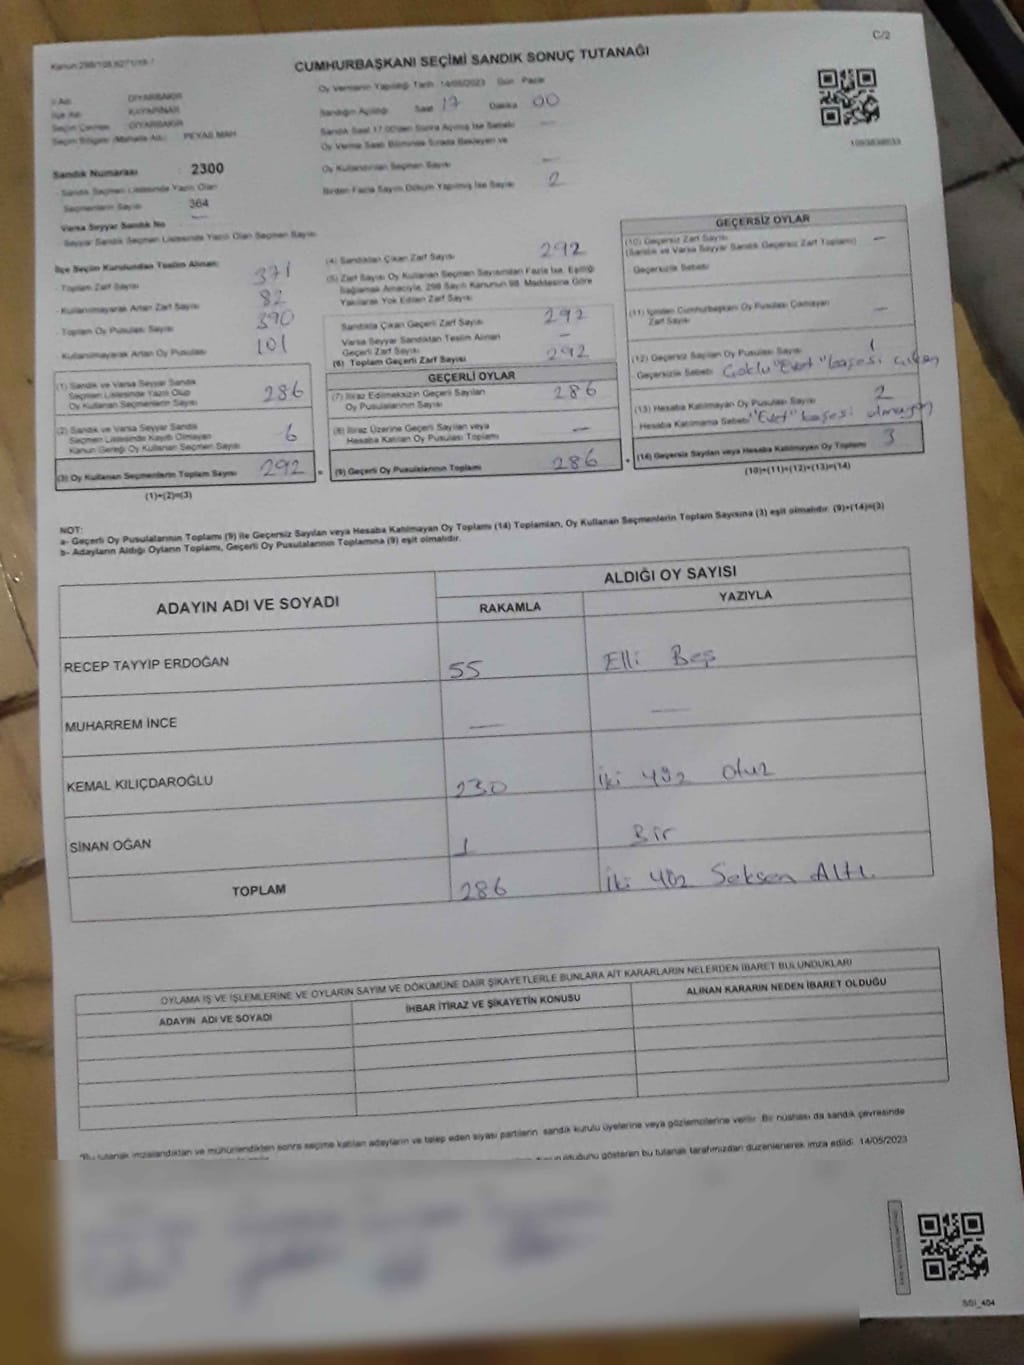 C/2
CUMHURBAŞKANI SEÇİMİ SANDIK SONUÇ TUTANAĞI
İl Adı: DİYARBAKIR
İlçe Adı: KAYAPINAR
Seçim Çevresi: DİYARBAKIR
Seçim Bölgesi (Mahalle Adı): PEYAS MAH
Sandık Numarası 2300
Sandık Seçmen Listesinde Yazılı Olan
Seçmenlerin Sayısı 364
Varsa Seyyar Sandık No —
- Seyyar Sandık Seçmen Listesinde Yazılı Olan Seçmen Sayısı
Oy Vermenin Yapıldığı Tarih 14/05/2023 Gün Pazar
Sandığın Açıldığı Saat 17 Dakika 00
Sandık Saat 17.00'den Sonra Açılmış İse Sebebi —
Oy Verme Saati Bitiminde Sırada Bekleyen ve
Oy Kullandırılan Seçmen Sayısı —
Birden Fazla Sayım Döküm Yapılmış İse Sayısı 2
İlçe Seçim Kurulundan Teslim Alınan:
- Toplam Zarf Sayısı 371
- Kullanılmayarak Artan Zarf Sayısı 82
- Toplam Oy Pusulası Sayısı 390
- Kullanılmayarak Artan Oy Pusulası 101
(1) Sandık ve Varsa Seyyar Sandık
Seçmen Listesinde Yazılı Olup
Oy Kullanan Seçmenlerin Sayısı 286
(2) Sandık ve Varsa Seyyar Sandık
Seçmen Listesinde Kayıtlı Olmayan
Kanun Gereği Oy Kullanan Seçmen Sayısı 6
(3) Oy Kullanan Seçmenlerin Toplam Sayısı 292
(1)+(2)=(3)
(4) Sandıktan Çıkan Zarf Sayısı 292
(5) Zarf Sayısı Oy Kullanan Seçmen Sayısından Fazla İse, Eşitliği
Sağlamak Amacıyla, 298 Sayılı Kanunun 98. Maddesine Göre
Yakılarak Yok Edilen Zarf Sayısı
Sandıkta Çıkan Geçerli Zarf Sayısı 292
Varsa Seyyar Sandıktan Teslim Alınan
Geçerli Zarf Sayısı —
(6) Toplam Geçerli Zarf Sayısı 292
GEÇERLİ OYLAR
(7) İtiraz Edilmeksizin Geçerli Sayılan
Oy Pusulalarının Sayısı 286
(8) İtiraz Üzerine Geçerli Sayılan veya
Hesaba Katılan Oy Pusulası Toplamı —
(9) Geçerli Oy Pusulalarının Toplamı 286
GEÇERSİZ OYLAR
(10) Geçersiz Zarf Sayısı —
(Sandık ve Varsa Seyyar Sandık Geçersiz Zarf Toplamı)
Geçersizlik Sebebi
(11) İçinden Cumhurbaşkanı Oy Pusulası Çıkmayan
Zarf Sayısı —
(12) Geçersiz Sayılan Oy Pusulası Sayısı 1
Geçersizlik Sebebi Çoklu "Evet" başesi çıkan
(13) Hesaba Katılmayan Oy Pusulası Sayısı 2
Hesaba Katılmama Sebebi "Evet" kaşesi olmayan
(14) Geçersiz Sayılan veya Hesaba Katılmayan Oy Toplamı 3
(10)+(11)+(12)+(13)=(14)
NOT:
a- Geçerli Oy Pusulalarının Toplamı (9) ile Geçersiz Sayılan veya Hesaba Katılmayan Oy Toplamı (14) Toplamları, Oy Kullanan Seçmenlerin Toplam Sayısına (3) eşit olmalıdır. (9)+(14)=(3)
b- Adayların Aldığı Oyların Toplamı, Geçerli Oy Pusulalarının Toplamına (9) eşit olmalıdır.
ADAYIN ADI VE SOYADI
ALDIĞI OY SAYISI
RAKAMLA YAZIYLA
RECEP TAYYİP ERDOĞAN 55 Elli Beş
MUHARREM İNCE — —
KEMAL KILIÇDAROĞLU 230 İki Yüz Otuz
SİNAN OĞAN 1 Bir
TOPLAM 286 İki Yüz Seksen Altı
OYLAMA İŞ VE İŞLEMLERİNE VE OYLARIN SAYIM VE DÖKÜMÜNE DAİR ŞİKAYETLERLE BUNLARA AİT KARARLARIN NELERDEN İBARET BULUNDUKLARI
ADAYIN ADI VE SOYADI İHBAR İTİRAZ VE ŞİKAYETİN KONUSU ALINAN KARARIN NEDEN İBARET OLDUĞU
"Bu tutanak imzalandıktan ve mühürlendikten sonra seçime katılan adayların ve talep eden siyasi partilerin sandık kurulu üyelerine veya gözlemcilerine verilir. Bir nüshası da sandık çevresinde
olduğunu gösteren bu tutanak tarafımızdan düzenlenerek imza edildi. 14/05/2023